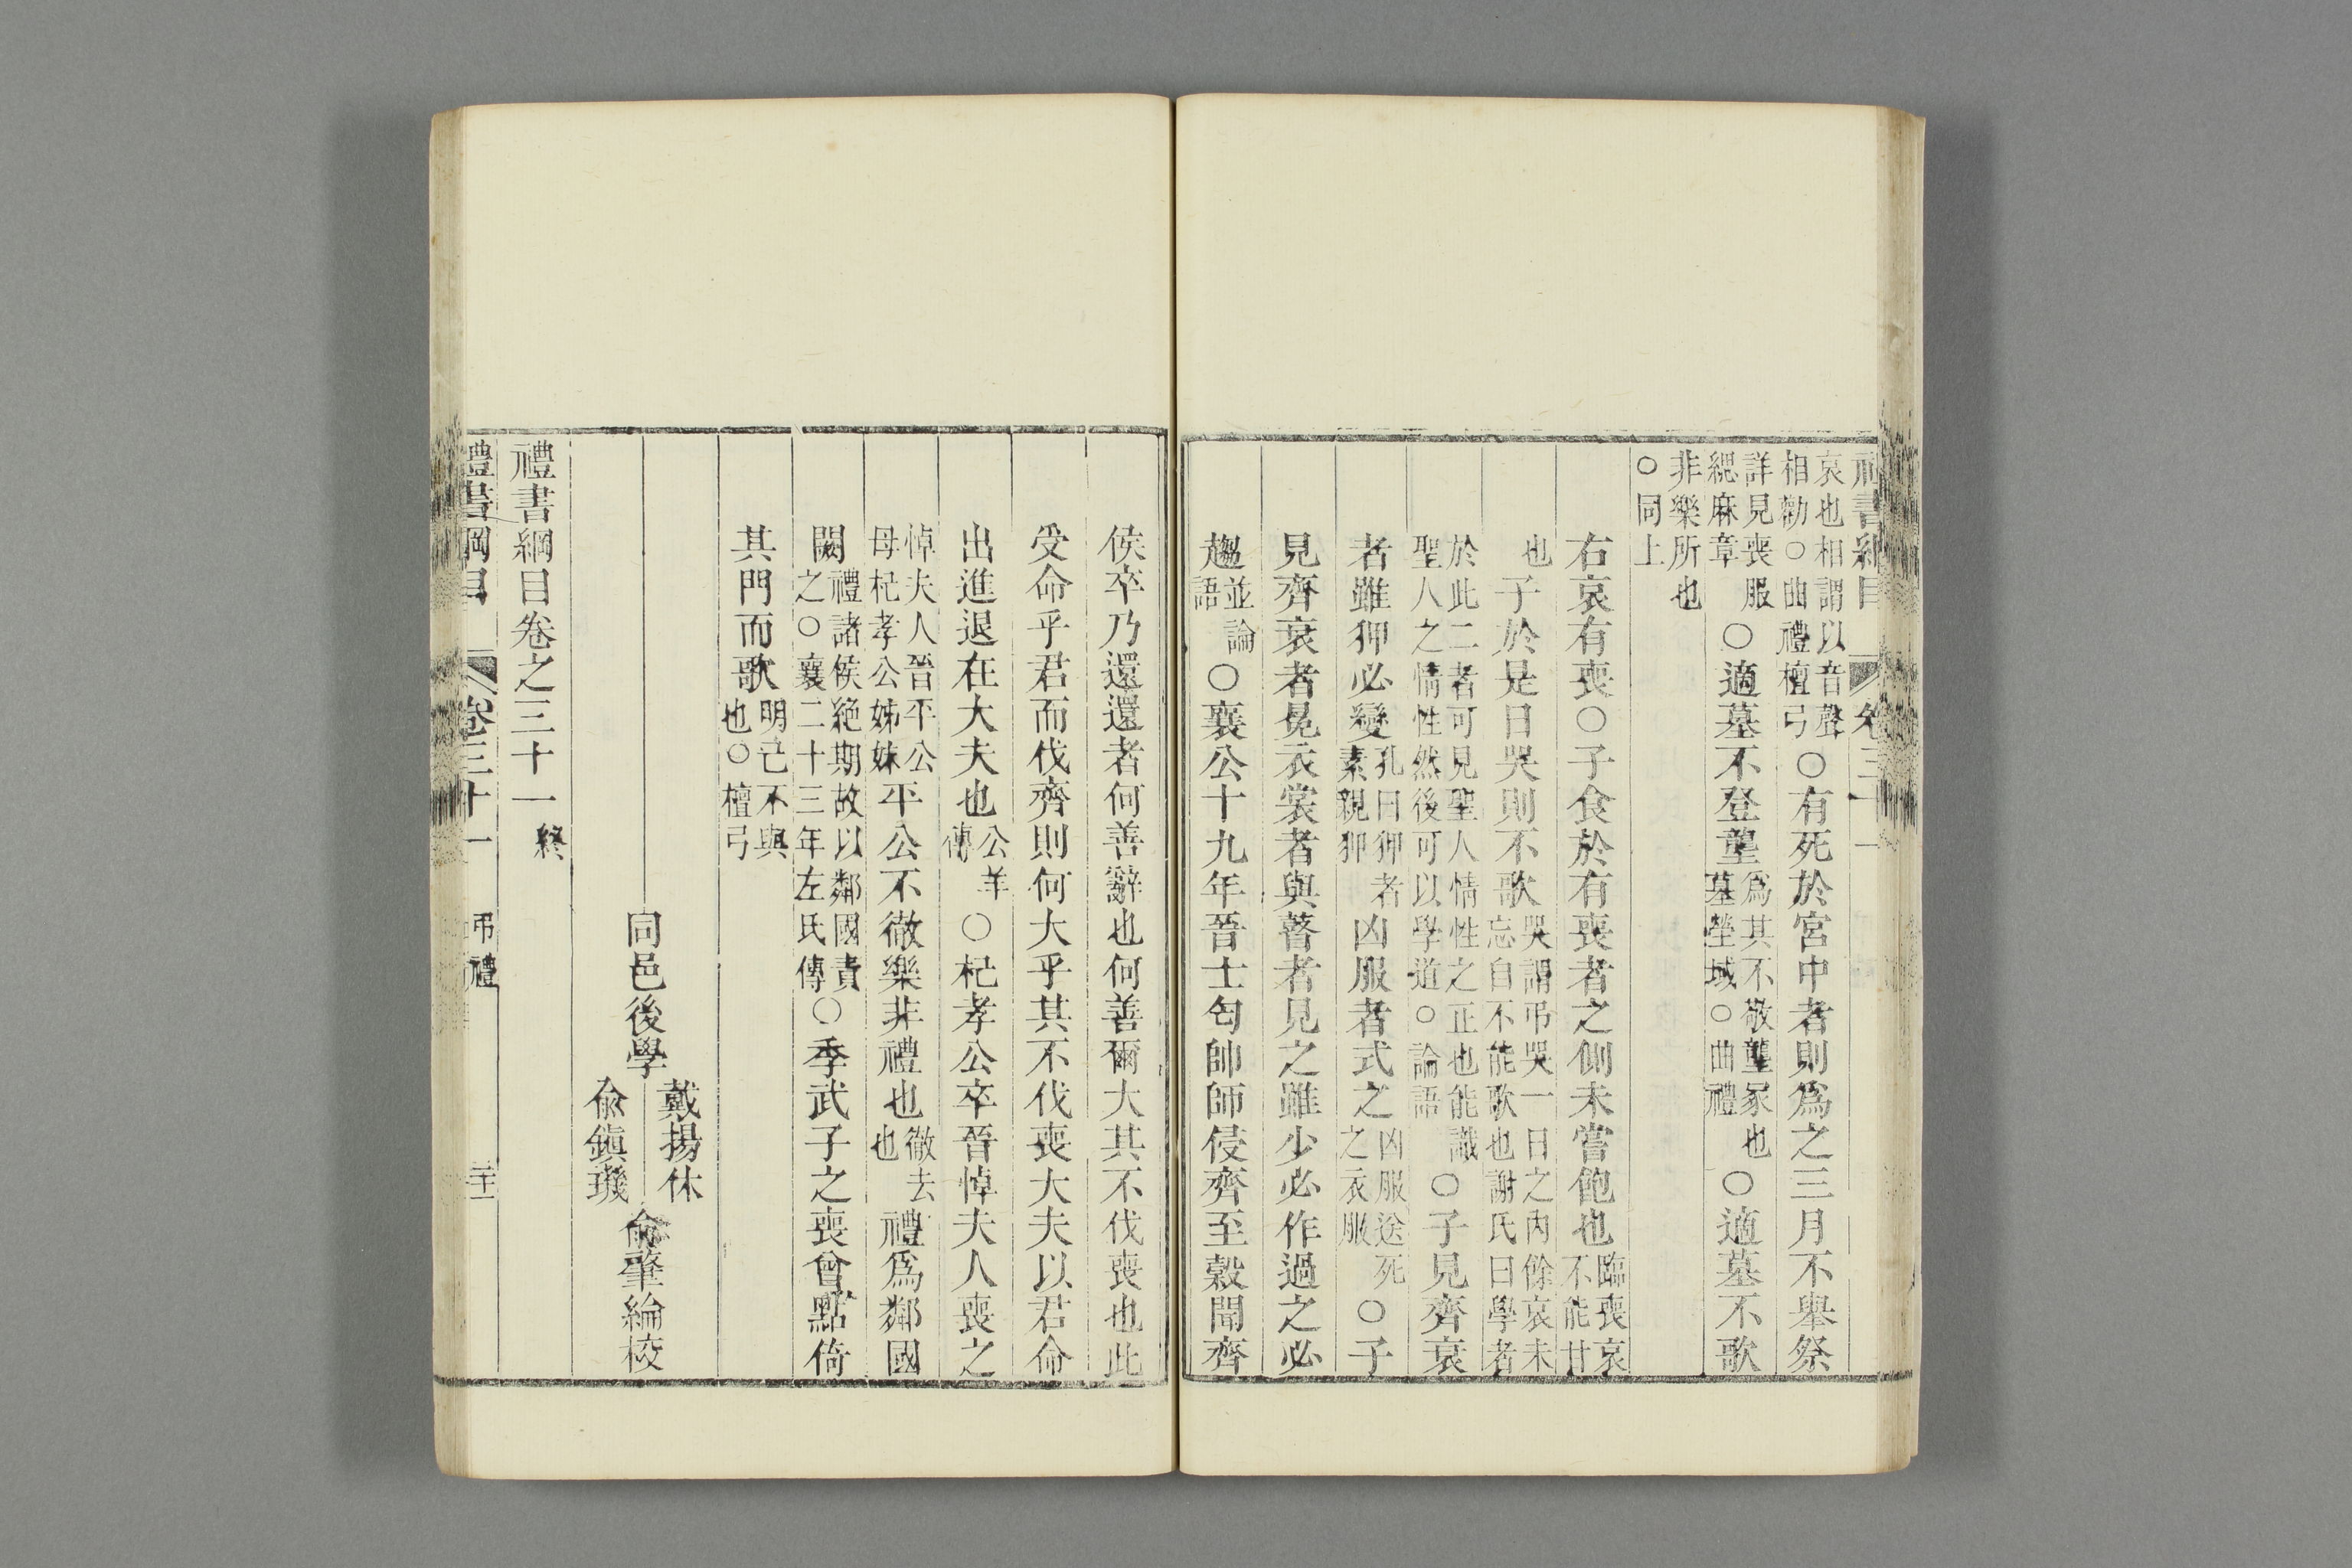 禮書綱目 卷三十一
哀也相謂以音聲相勸○曲禮檀弓○有死於宮中者則爲之三月不舉祭
詳見喪服緦麻章○適墓不登壟爲其不敬壟冢也墓塋域○曲禮○適墓不歌
非樂所也○同上
右哀有喪○子食於有喪者之側未嘗飽也臨喪哀不能甘
也子於是日哭則不歌哭謂弔哭一日之內餘哀未忘自不能歌也謝氏曰學者
於此二者可見聖人情性之正也能識聖人之情性然後可以學道○論語○子見齊衰
者雖狎必變孔曰狎者素親狎凶服者式之凶服送死之衣服○子
見齊衰者冕衣裳者與瞽者見之雖少必作過之必
趨並論語○襄公十九年晉士匄帥師侵齊至穀聞齊
侯卒乃還還者何善辭也何善爾大其不伐喪也此
受命乎君而伐齊則何大乎其不伐喪大夫以君命
出進退在大夫也公羊傳○杞孝公卒晉悼夫人喪之
悼夫人晉平公母杞孝公姊妹平公不徹樂非禮也徹去也禮爲鄰國
闕禮諸侯絕期故以鄰國責之○襄二十三年左氏傳○季武子之喪曾點倚
其門而歌明己不與也○檀弓
同邑後學戴揚休俞鎮璣俞肇綸校
禮書綱目卷之三十一終
禮書綱目 卷三十一 弔禮 二十一